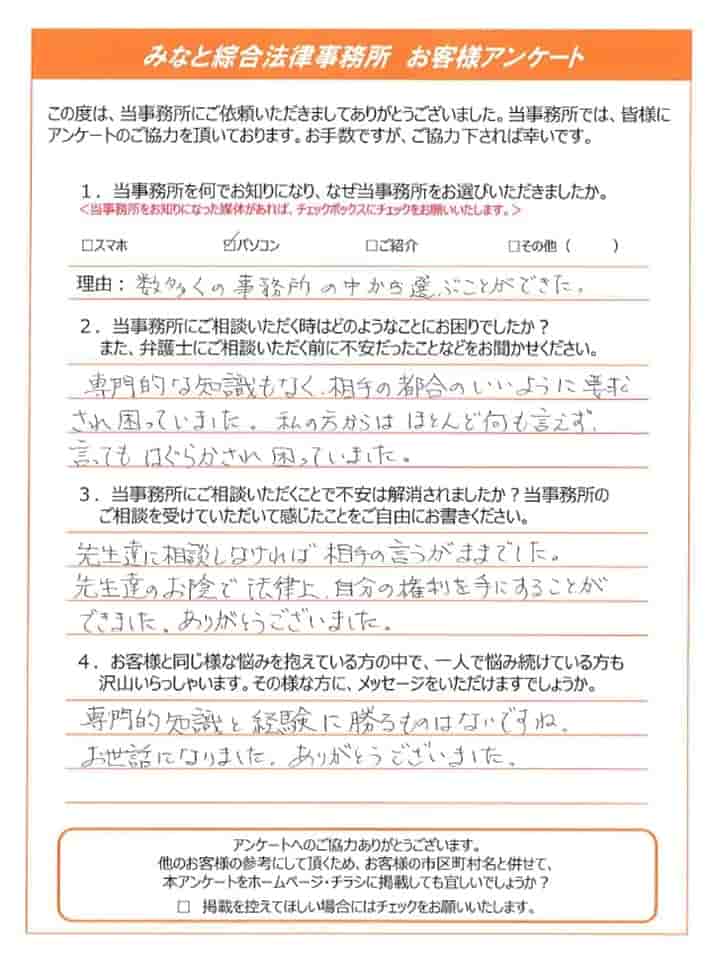 みなと綜合法律事務所 お客様アンケート
この度は、当事務所にご依頼いただきましてありがとうございました。当事務所では、皆様に
アンケートのご協力を頂いております。お手数ですが、ご協力下されば幸いです。
1．当事務所を何でお知りになり、なぜ当事務所をお選びいただきましたか。
＜当事務所をお知りになった媒体があれば、チェックボックスにチェックをお願いいたします。＞
□スマホ ☑パソコン □ご紹介 □その他（　　）
理由：数多くの事務所の中から選ぶことができた。
2．当事務所にご相談いただく時はどのようなことにお困りでしたか？
また、弁護士にご相談いただく前に不安だったことなどをお聞かせください。
専門的な知識もなく、相手の都合のいいように要求
され困っていました。私の方からはほとんど何も言えず、
言ってもはぐらかされ困っていました。
3．当事務所にご相談いただくことで不安は解消されましたか？当事務所の
ご相談を受けていただいて感じたことをご自由にお書きください。
先生達に相談しなければ相手の言うがままでした。
先生達のお陰で法律上、自分の権利を手にすることが
できました。ありがとうございました。
4．お客様と同じ様な悩みを抱えている方の中で、一人で悩み続けている方も
沢山いらっしゃいます。その様な方に、メッセージをいただけますでしょうか。
専門的知識と経験に勝るものはないですね。
お世話になりました。ありがとうございました。
アンケートへのご協力ありがとうございます。
他のお客様の参考にして頂くため、お客様の市区町村名と併せて、
本アンケートをホームページ・チラシに掲載しても宜しいでしょうか？
□ 掲載を控えてほしい場合にはチェックをお願いいたします。